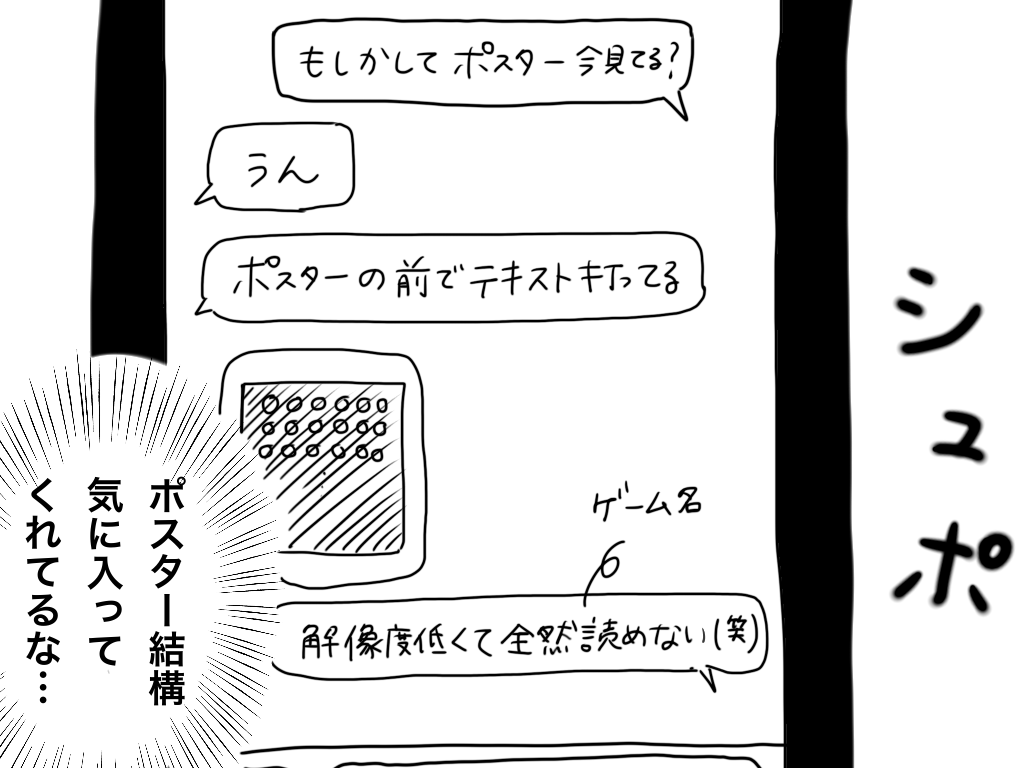 もしかしてポスター今見てる?
うん
ポスターの前でテキスト打ってる
ゲーム名
解像度低くて全然読めない(笑)
ポスター結構
気に入って
くれてるな…
シュポ